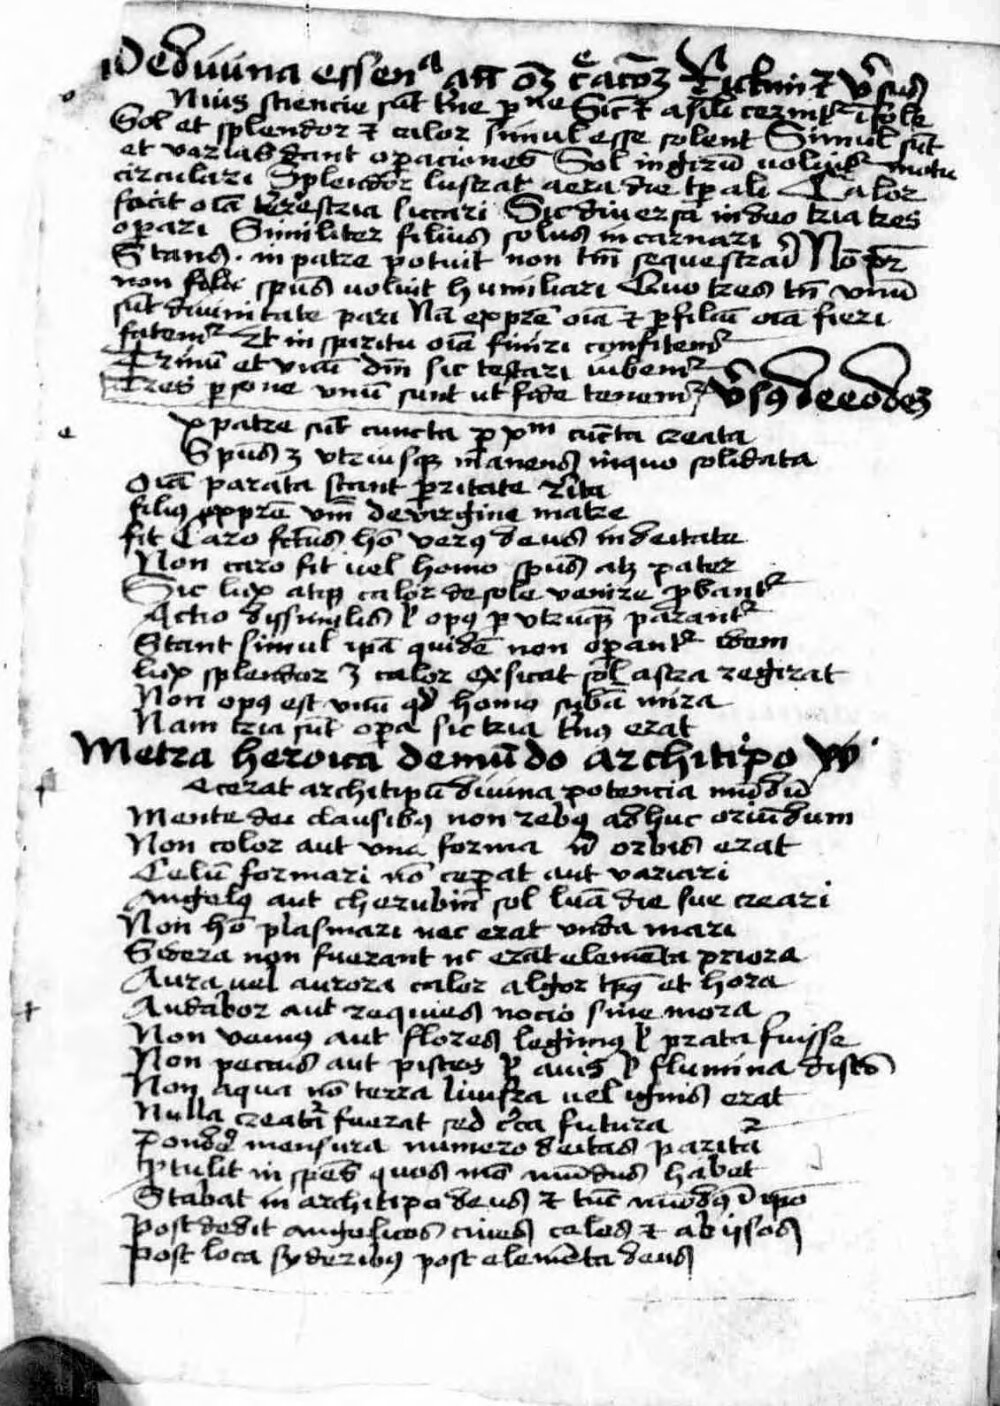 De divina essen^a an̄ om̄ c^eac̄om̄ Rickmi & v̄sus
Nius sciencie sūt t̄ne p^ne Sic & asili cernit^r ī sole
Sol et splendor & calor simul esse solent Simul sūt
et varias dant opaciones Sol in girū voluit^r motu
circulari Splendor lustrat aera die tp̄ali Calor
facit oīa terrestria siccari Sic diversa in deo tria tres
opari Similiter filius solus in carnari
Stans in patre potuit non tm̄ sequestrari Nō pr̄
non spūs voluit humiliari Quo tres tn̄ unū
sūt divinitate pari Nā ex prē oīa & p filiū oīa fieri
fatem^r Et in spiritu oīa finiri confitem^r
Trinū et unū dm̄ sic testari iubem^r
Tres psone unū sunt ut fide tenem^r v̄sus de eodem
x patre sūt cuncta p xp^m cūcta creata
Spūs & utriusq manens in quo solidata
Oīa parata stant pritate rata
filius ex prē unī de virgine matre
fit Caro fctūs hō verus deus in deitate
Non caro fit vel homo spūs atq pater
Sic lux atq calor de sole venire pbant^r
Actio dissimilis & opus p utrūq parant^r
Stant simul ipā quidē non opant^r idem
Lux splendor & calor exsicat sol astra regirat
Non opus est unū qd homo sub mira
Nam tria sūt opa sic tria t̄nus erat
Metra heroica de mūdo architipo
ecerat architipū divina potencia mūdū
Mente dei clausibus non rebus adhuc oriūdum
Non color aut una forma n̄ orbis erat
Celū formari nō ceperat aut variari
Angelus aut cherubin sol lūa die sue creari
Non hō plasmari nec erat unda mari
Sidera non fuerant nc erāt elemēta priora
Aura vel aurora calor algor tps et hora
Aut labor aut requies nocio sine mora
Non vemus aut flores legimus & prata fuisse
Non pecus aut pisces & avis & flumina disc
Non aqua nō terra limfra vel ignis erat
Nulla creatr̄a fuerat sed c̄ca futura
Pondē mensura numero deitas parit^ra
Ptulit in spēs quos mō mūdus habet
Stabat in architipo deus & tūc mūdus ī ipō
Post dedit angelicos cives celos & abissos
Post loca syderibus post elemēta deus